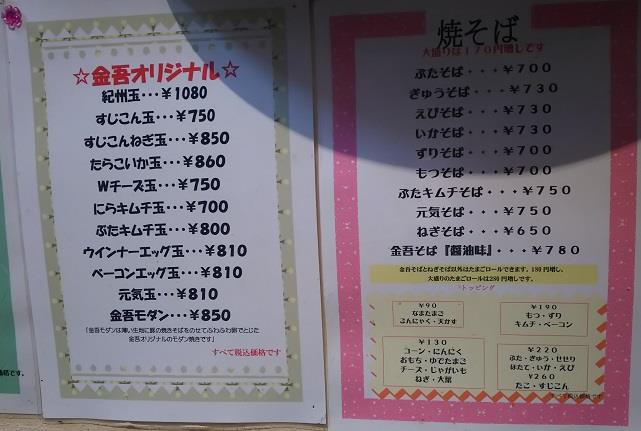 ☆金吾オリジナル☆
紀州玉・・・￥1080
すじこん玉・・・￥750
すじこんねぎ玉・・・￥850
たらこいか玉・・・￥860
Wチーズ玉・・・￥750
にらキムチ玉・・・￥700
ぶたキムチ玉・・・￥800
ウインナーエッグ玉・・・￥810
ベーコンエッグ玉・・・￥810
元気玉・・・￥810
金吾モダン・・・￥850
「金吾モダンは薄い生地に豚の焼きそばをのせてふわふわ卵でとじた
金吾オリジナルのモダン焼きです」
すべて税込価格です
焼そば
大盛りは170円増しです
ぶたそば・・・￥700
ぎゅうそば・・・￥730
えびそば・・・￥730
いかそば・・・￥730
ずりそば・・・￥700
もつそば・・・￥700
ぶたキムチそば・・・￥750
元気そば・・・￥750
ねぎそば・・・￥650
金吾そば『醤油味』・・・￥780
金吾そばとねぎそば以外はたまごロールできます。180円増し、
大盛りのたまごロールは230円増しです。
トッピング
￥90
なまたまご
こんにゃく・天かす
￥190
もつ・ずり
キムチ・ベーコン
￥130
コーン・にんにく
おもち・ゆでたまご
チーズ・じゃがいも
ねぎ・大葉
￥220
ぶた・ぎゅう・せせり
ほたて・いか・えび
￥260
たこ・すじこん
すべて税込価格です